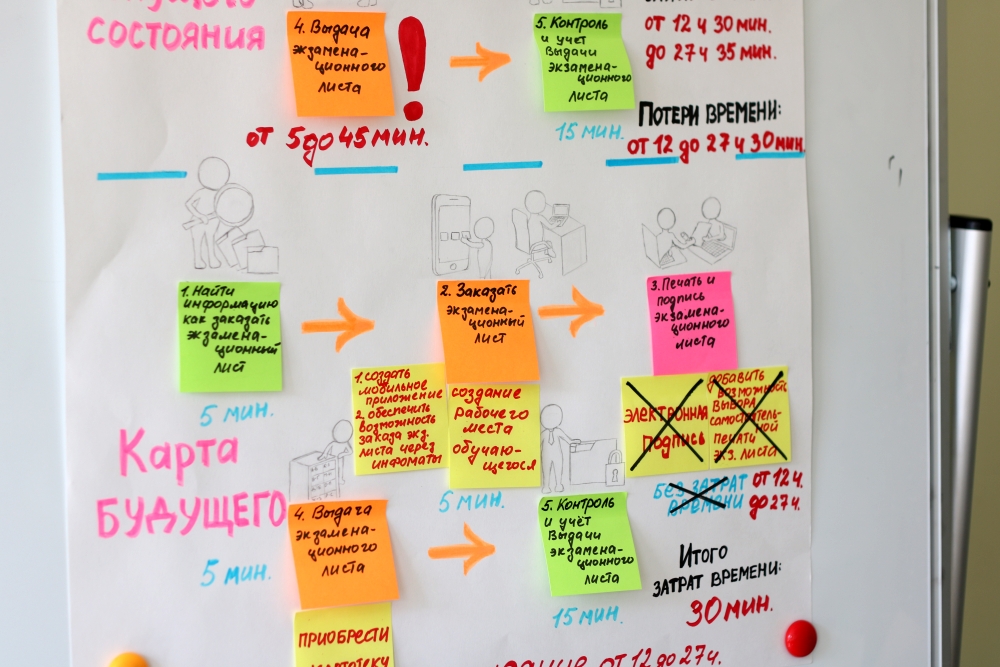 СОСТОЯНИЯ
4. Выдача
экзамена-
ционного
листа
!
5. Контроль
и учет
Выдачи
экзамена-
ционного
листа
от 12 ч 30 мин.
до 27 ч 35 мин.
от 5 до 45 мин.
15 мин.
ПОТЕРИ ВРЕМЕНИ:
от 12 до 27 ч 30 мин.
1. Найти
информацию
как заказать
экзамена-
ционный
лист
5 мин.
2. Заказать
экзамена-
ционный
лист
1. создать
мобильное
приложение
2. обеспечить
возможность
заказа экз.
листа через
инфоматы
создание
рабочего
места
обучаю-
щегося
5 мин.
3. Печать и
подпись
экзамена-
ционного
листа
электронная
подпись
добавить
возможность
выбора
самостоятель-
ной
печати
экз. листа
БЕЗ ЗАТРАТ
ВРЕМЕНИ
от 12 ч.
до 27 ч.
Карта
БУДУЩЕГО
4. Выдача
экзамена-
ционного
листа
5 мин.
ПРИОБРЕСТИ
5. Контроль
и учёт
Выдачи
экзамена-
ционного
листа
15 мин.
Итого
ЗАТРАТ ВРЕМЕНИ:
30 мин.
от 12 до 27 ч.